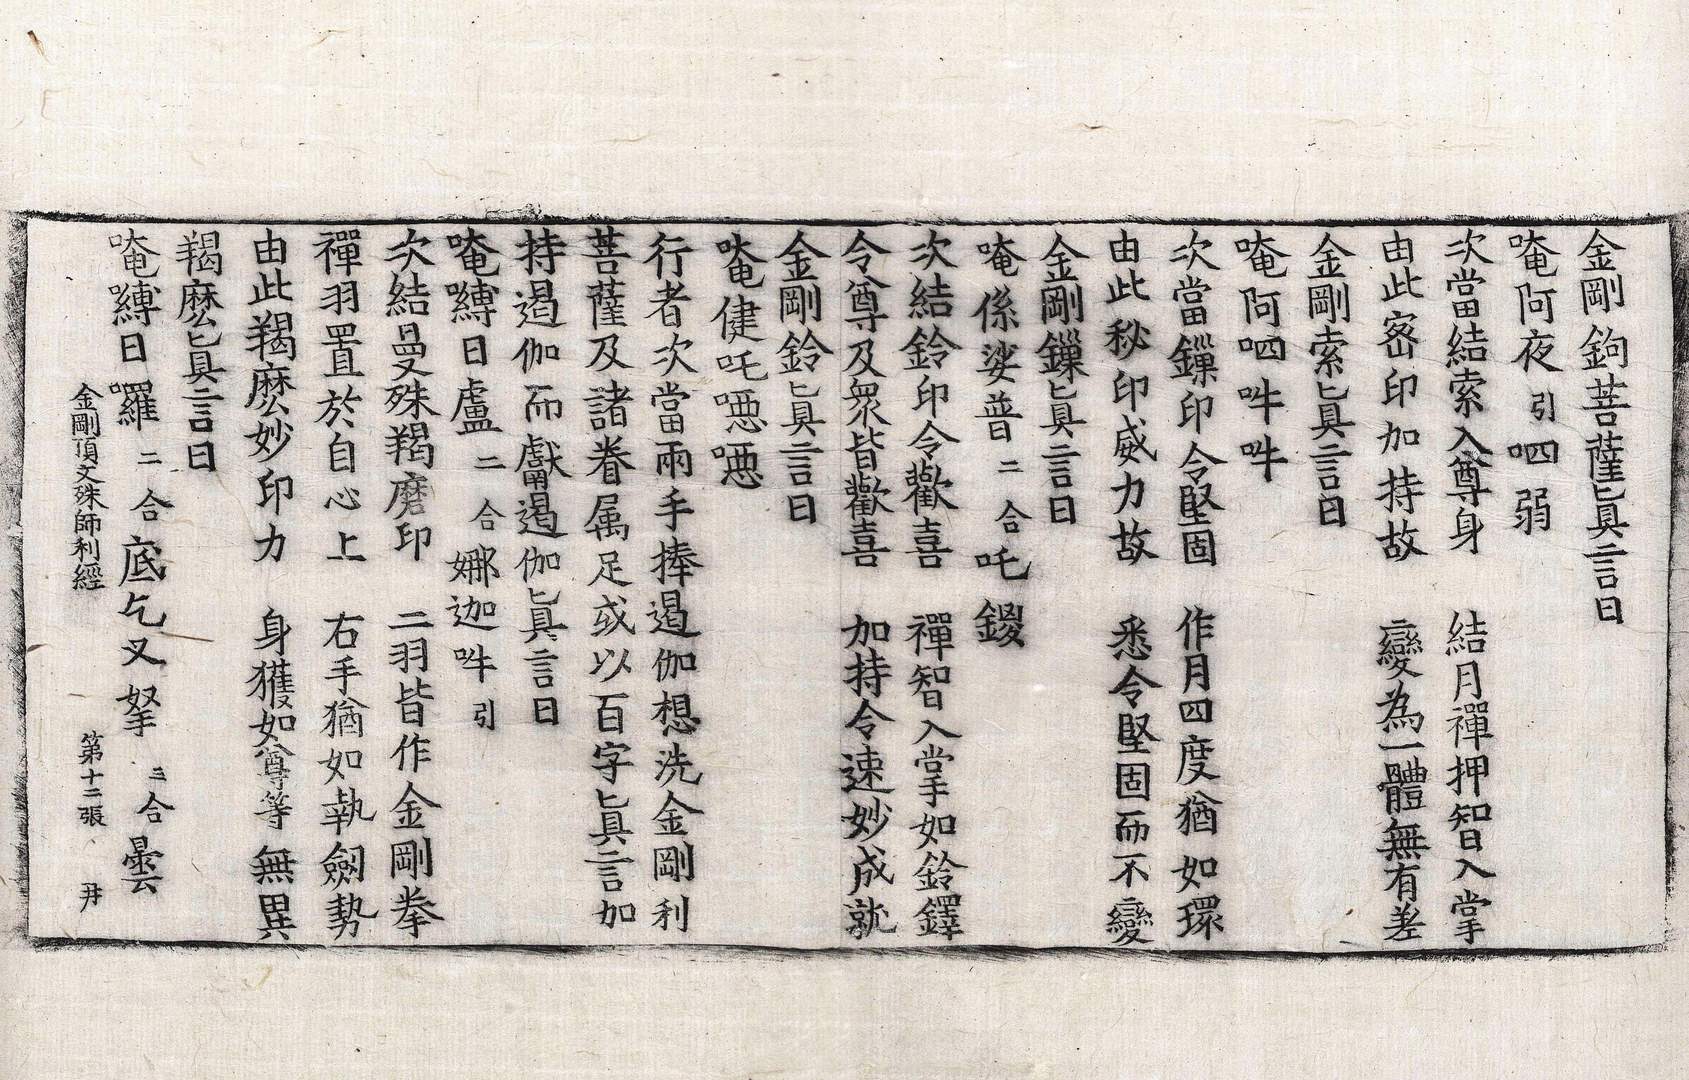 金剛鉤菩薩真言曰
唵阿夜引呬弱
次當結索入尊身　結月禪押智入掌
由此密印加持故　變為一體無有差
金剛索真言曰
唵阿呬吽吽
次當鏁印令堅固　作月四度猶如環
由此秘印威力故　悉令堅固而不變
金剛鏁真言曰
唵係娑普二合吒鑁
次結鈴印令歡喜　禪智入掌如鈴鐸
令尊及衆皆歡喜　加持令速妙成就
金剛鈴真言曰
唵健吒噁噁
行者次當兩手捧遏伽想洗金剛利
菩薩及諸眷属足或以百字真言加
持遏伽而獻遏伽真言曰
唵嚩日盧二合娜迦吽引
次結曼殊羯磨印　二羽皆作金剛拳
禪羽置於自心上　右手猶如執劒勢
由此羯麽妙印力　身獲如尊等無異
羯麽真言曰
唵嚩日囉二合底乞叉拏三合曇
金剛頂文殊師利經　第十二張